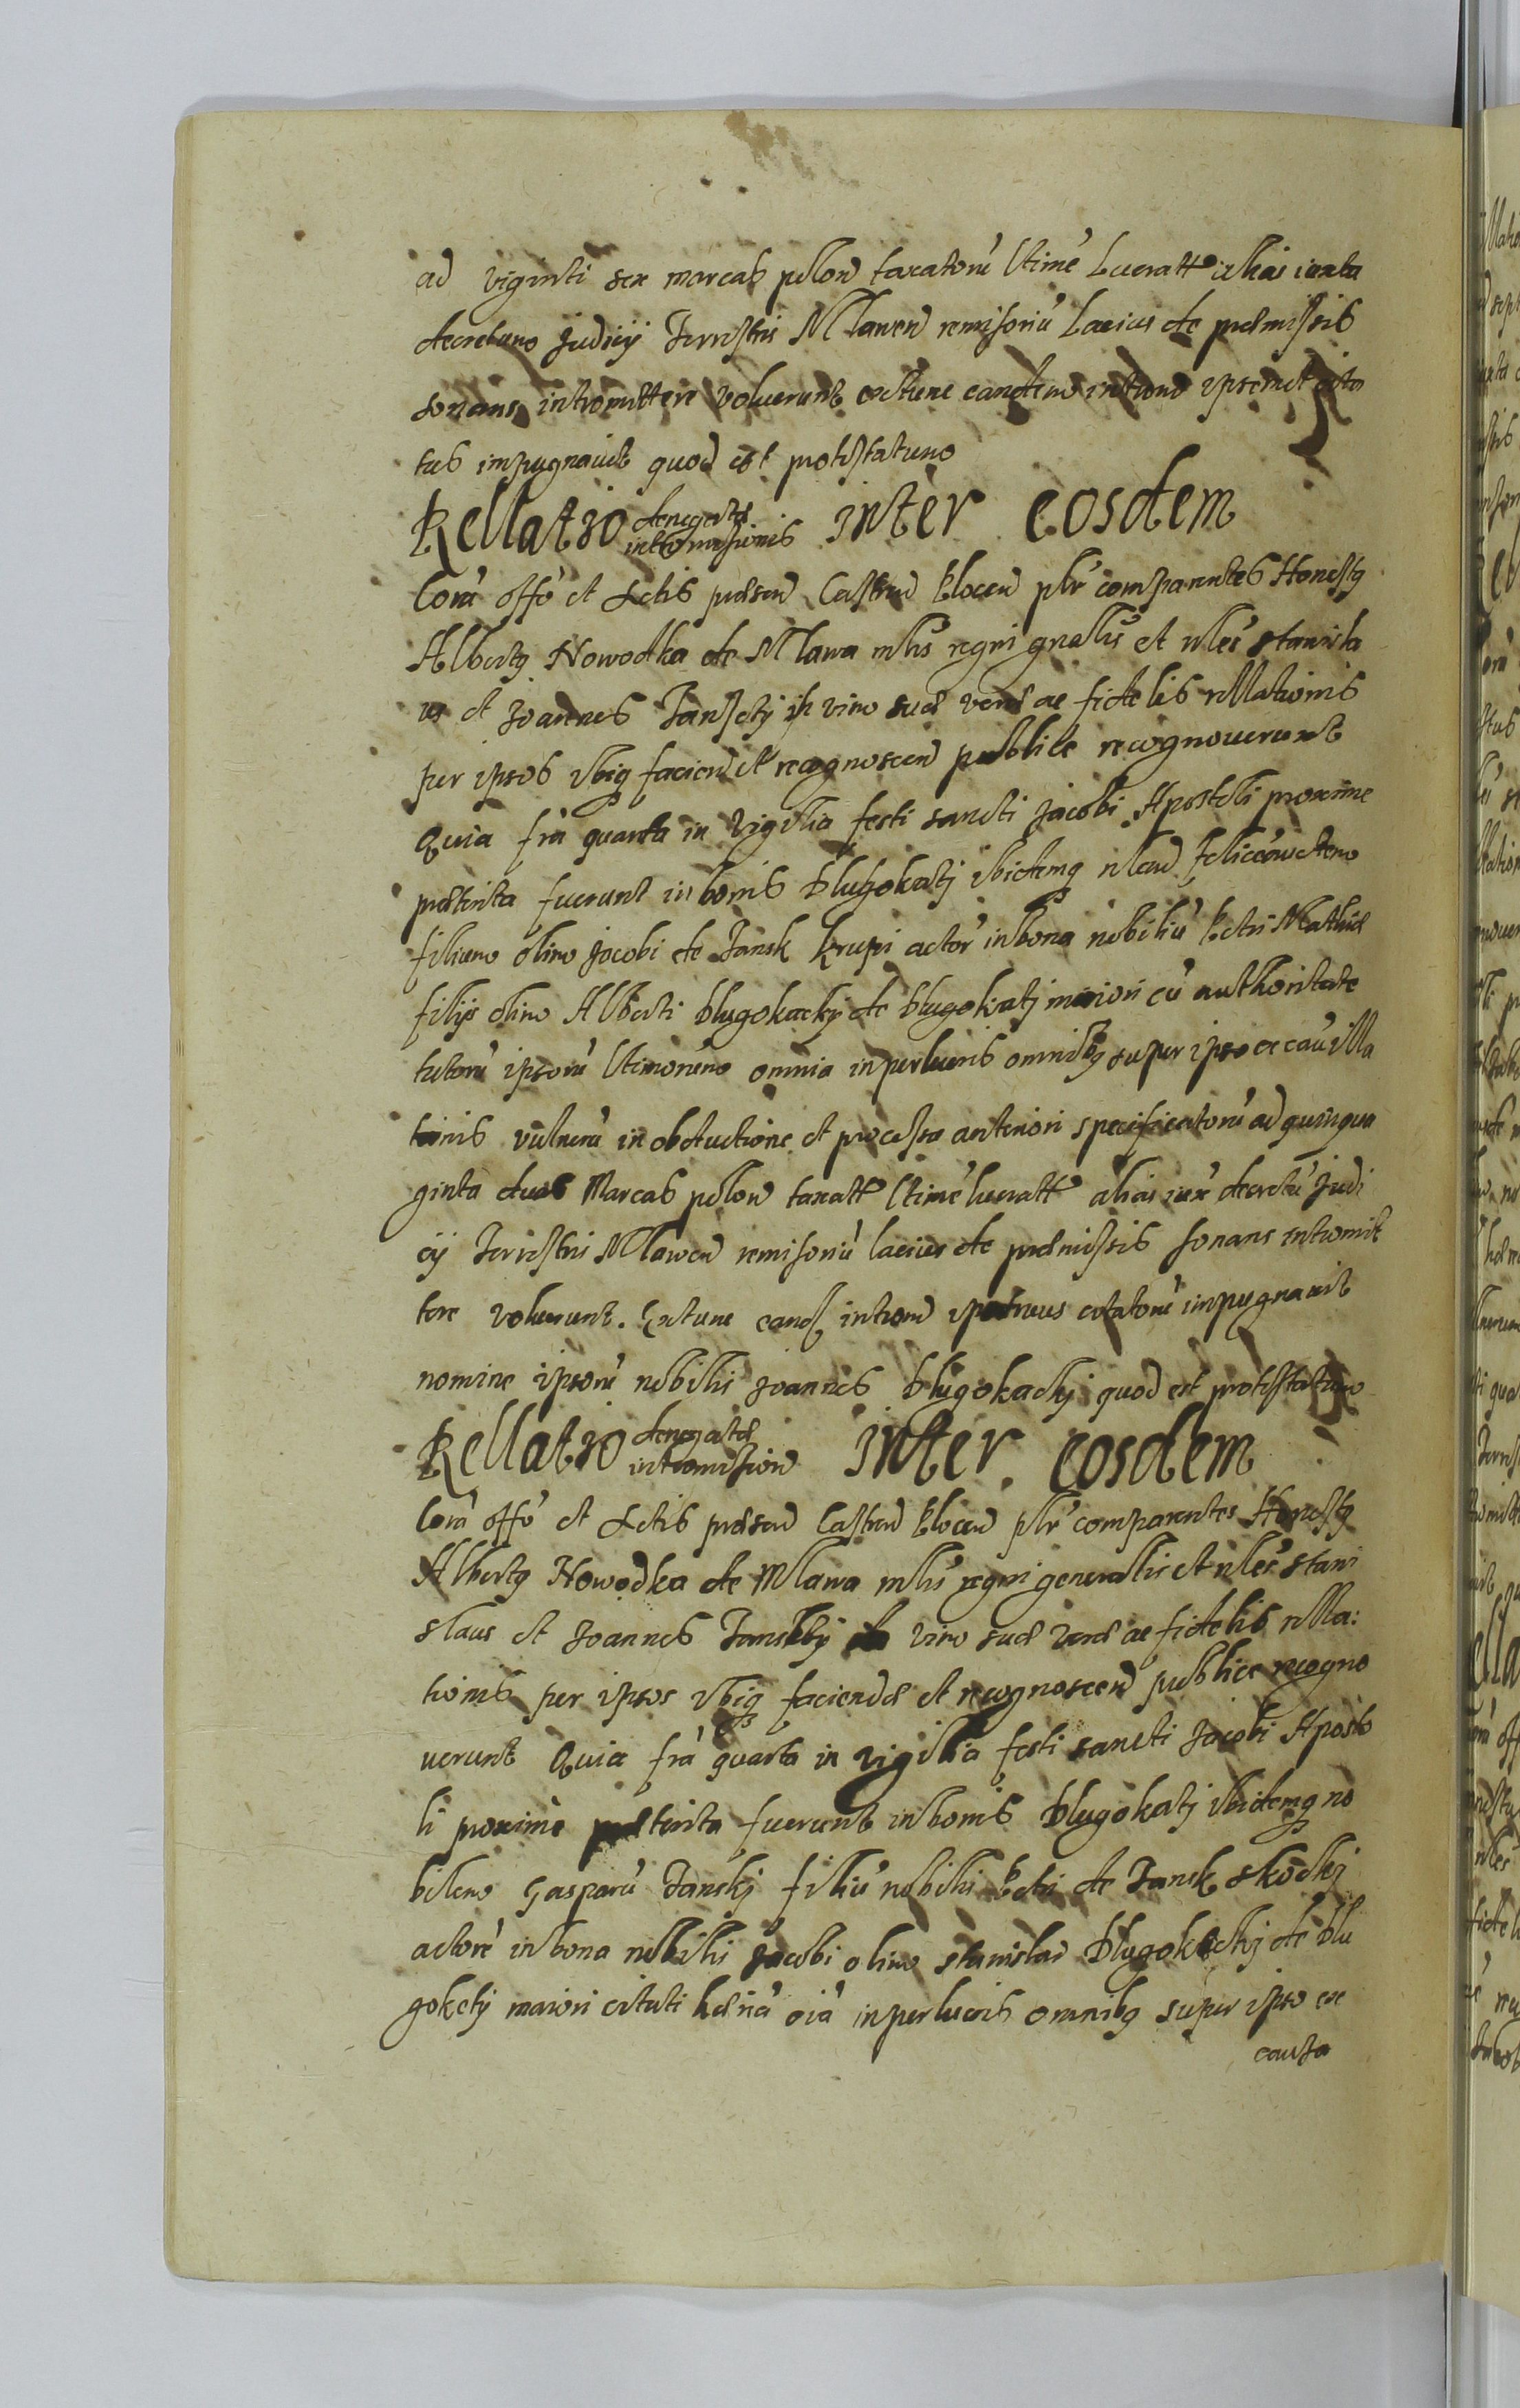 ad viginti sex marcas polon taxatorũ ltime lucratt alias iuxta
decretum Judicij Terrestris Mlawen remisoriũ Lacius de præmissis
sonans intromittere voluerunt extunc eandem intrond ipsemet cita
tus impugnavit quod est protestatum
Rellatio denegatæ intromissionis inter eosdem
Corã offo et Actis præsen Castren Plocen plr comparentes Honestq
Albertq Nowodka de Mlawa mlis regni gnalis et nles Stanisla
us et Joannes Janscÿ in vim suæ veræ ac fidelis rellationis
per ipsos ibiq faciend et recognoscen publice recognoverunt
Quia fria quarta in vigilia festi sancti Jacobi Apostoli proxime
præterita fuerunt in bonis Dlugokatj ibidemq nlem Felicem
filium olim Jacobi de Jansk Krupi actor in bona nobiliũ Petri Mathiæ
filijs olim Alberti Dlugokackj de Dlugokatj maiori cũ authoritate
tutorũ ipsorũ ltimorum omnia in perlucris omnibq super ipso ex causa illa
tionis vulnerũ in obductione et processu anteriori specificatorũ ad quinqua
ginta duas Marcas polon taxatt ltime lucratt alias iux decretũ Judi
cij Terrestris Mlawen remisoriũ lacius de præmissis sonans intromit
tere voluerunt. Extunc eand intrond patruus citatorũ impugnavit
nomine ipsorũ nobilis Joannes Dlugokackj quod est protestatum
Rellatio denegatæ intromission inter eosdem
Corã offo et Actis præsen Castren Plocen plr comparentes Honestq
Albertq Nowodka de Mlawa mlis regni generallis et nles Stani
slaus et Joannes Janskÿ vim suæ veræ ac fidelis rella:
tionis per ipsos ibiq faciendæ et recognoscen publice recogno
verunt Quia fria quarta in vigilia festi sancti Jacobi Aposto
li proxime præterita fuerunt in bonis Dlugokatj ibidemq no
bilem Gasparũ Janskj filiũ nobilis Petri de Jansk
actore in bona nobilis Jacobi olim Stanislai Dlugokackj de Dlu
gokatj maiori citati oia in perlucris omnibq super ipso ex
causa